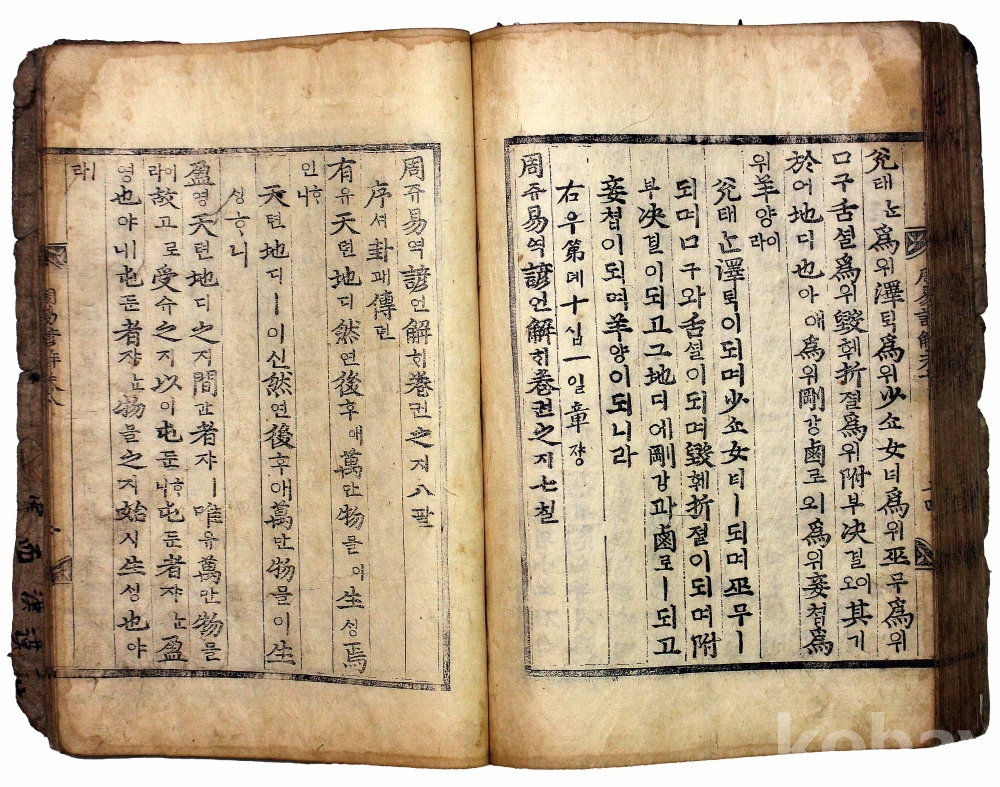 兌태ᄂᆞᆫ爲위澤ᄐᆡᆨ爲위少쇼女녀爲위巫무爲위
口구舌셜爲위毁훼折졀爲위附부決결이오其기
於어地디也야애爲위剛강鹵로ㅣ오爲위妾쳡爲
위羊양이라
兌태ᄂᆞᆫ澤ᄐᆡᆨ이되며少쇼女녀ㅣ되며巫무ㅣ
되며口구와舌셜이되며毁훼折졀이되며附
부決결이되고그地디에剛강과鹵로ㅣ되고
妾쳡이되며羊양이되니라
右우第뎨十십一일章쟝
周쥬易역諺언解ᄒᆡ卷권之지七칠
周쥬易역諺언解ᄒᆡ卷권之지八팔
序셔卦괘傳뎐
有유天텬地디然연後후애萬만物믈이生ᄉᆡᆼ焉
언ᄒᆞ니
天텬地디ㅣ이신然연後후애萬만物믈이生
ᄉᆡᆼᄒᆞ니
盈영天텬地디之지間간者쟈ㅣ唯유萬만物믈
이라故고로受슈之지以이屯둔ᄒᆞ니屯둔者쟈ᄂᆞᆫ盈
영也야ㅣ니屯둔者쟈ᄂᆞᆫ物믈之지始시生ᄉᆡᆼ也야
ㅣ라